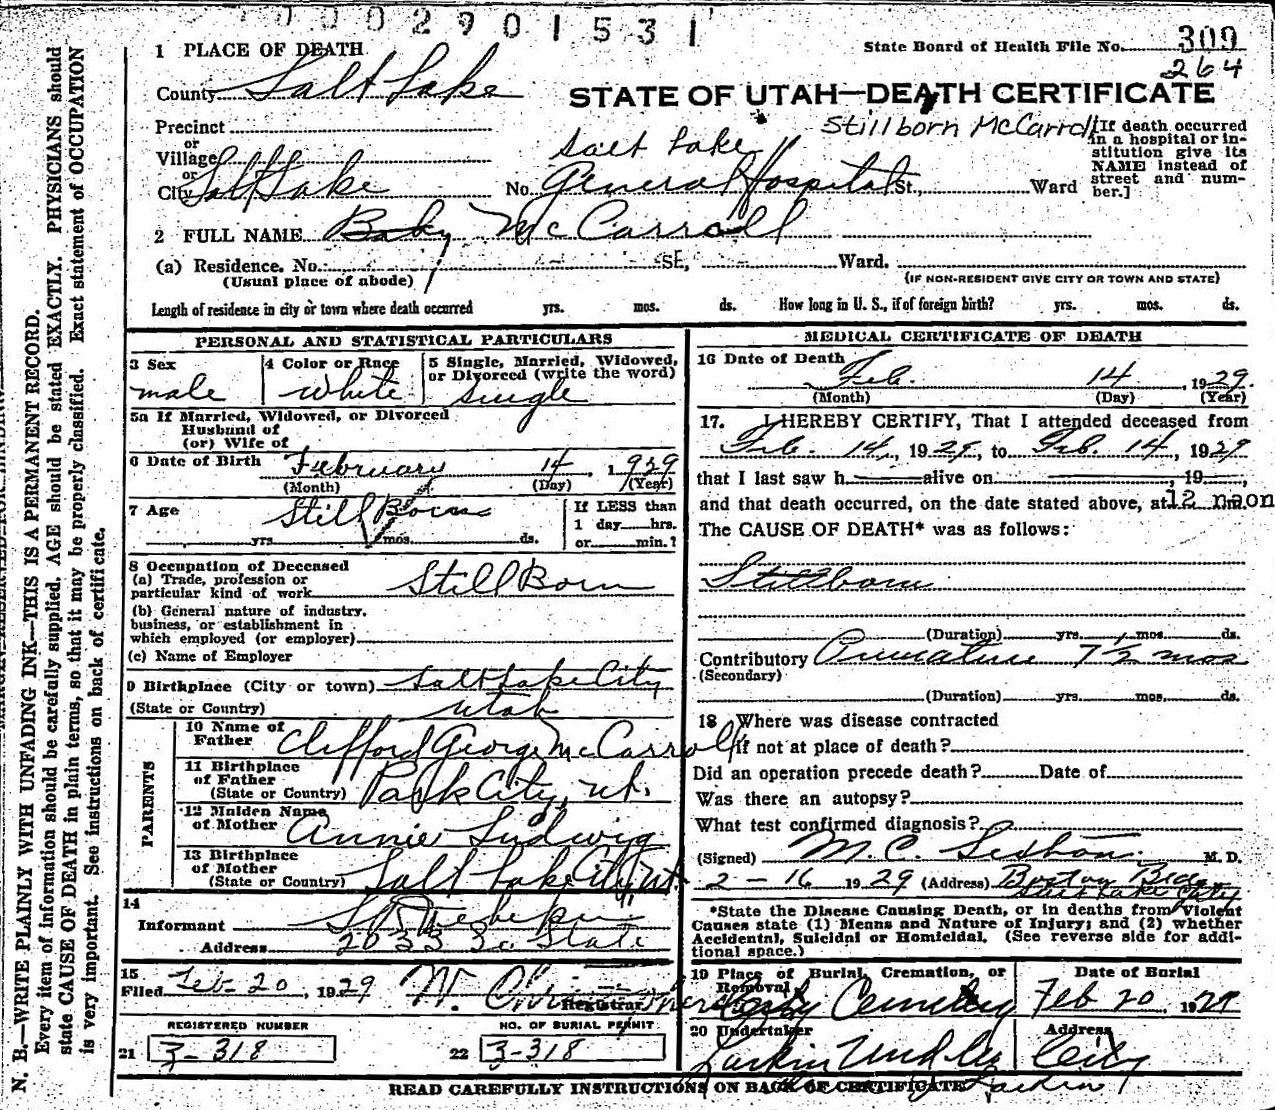 0002901531
1 PLACE OF DEATH
State Board of Health File No. 309
264
County Salt Lake
STATE OF UTAH—DEATH CERTIFICATE
Stillborn McCarroll
Precinct
or
Village
or
City Salt Lake
No. Salt Lake General Hospital St., Ward
[If death occurred in a hospital or institution give its NAME instead of street and number.]
2 FULL NAME Baby McCarroll
(a) Residence. No. St., Ward.
(Usual place of abode)
(IF NON-RESIDENT GIVE CITY OR TOWN AND STATE)
Length of residence in city or town where death occurred yrs. mos. ds. How long in U. S., if of foreign birth? yrs. mos. ds.
PERSONAL AND STATISTICAL PARTICULARS
3 Sex
male
4 Color or Race
White
5 Single, Married, Widowed, or Divorced (write the word)
single
5a If Married, Widowed, or Divorced
Husband of
(or) Wife of
6 Date of Birth February 14, 1929
(Month) (Day) (Year)
7 Age Still Born
yrs mos. ds.
If LESS than
1 day hrs.
or min.?
8 Occupation of Deceased
(a) Trade, profession or
particular kind of work Still Born
(b) General nature of industry,
business, or establishment in
which employed (or employer)
(c) Name of Employer
9 Birthplace (City or town) Salt Lake City
(State or Country) Utah
PARENTS
10 Name of Father Clifford George McCarroll
11 Birthplace of Father
(State or Country) Park City, Ut.
12 Maiden Name of Mother Annie Ludwig
13 Birthplace of Mother
(State or Country) Salt Lake City Ut.
14
Informant
Address 2033 So State
15
Filed Feb 20, 1929
Registrar
REGISTERED NUMBER
21 3-318
NO. OF BURIAL PERMIT
22 3-318
MEDICAL CERTIFICATE OF DEATH
16 Date of Death
Feb. 14, 1929.
(Month) (Day) (Year)
17. I HEREBY CERTIFY, That I attended deceased from
Feb. 14, 1929, to Feb. 14, 1929
that I last saw h alive on , 19 ,
and that death occurred, on the date stated above, at 12 noon m.
The CAUSE OF DEATH* was as follows:
Stillborn
(Duration) yrs. mos. ds.
Contributory Premature 7 1/2 mos
(Secondary)
(Duration) yrs. mos. ds.
18 Where was disease contracted
if not at place of death?
Did an operation precede death? Date of
Was there an autopsy?
What test confirmed diagnosis?
(Signed) M.C. M. D.
2-16 1929 (Address) Boston Bldg
Salt Lake City
*State the Disease Causing Death, or in deaths from Violent
Causes state (1) Means and Nature of Injury; and (2) whether
Accidental, Suicidal or Homicidal. (See reverse side for addi-
tional space.)
19 Place of Burial, Cremation, or Removal
City Cemetery
Date of Burial
Feb 20, 1929
20 Undertaker
Larkin
Address
City
READ CAREFULLY INSTRUCTIONS ON BACK OF CERTIFICATE
N. B.—WRITE PLAINLY WITH UNFADING INK—THIS IS A PERMANENT RECORD.
Every item of information should be carefully supplied. AGE should be stated EXACTLY. PHYSICIANS should
state CAUSE OF DEATH in plain terms, so that it may be properly classified. Exact statement of OCCUPATION
is very important. See instructions on back of certificate.